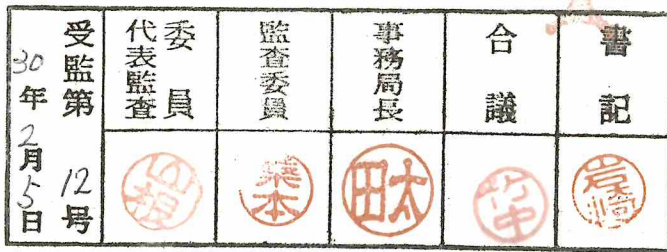 受監第12号
30年2月5日
代表監査委員
監査委員
事務局長
合議
書記
山根
桑本
太田
竹中
岩崎